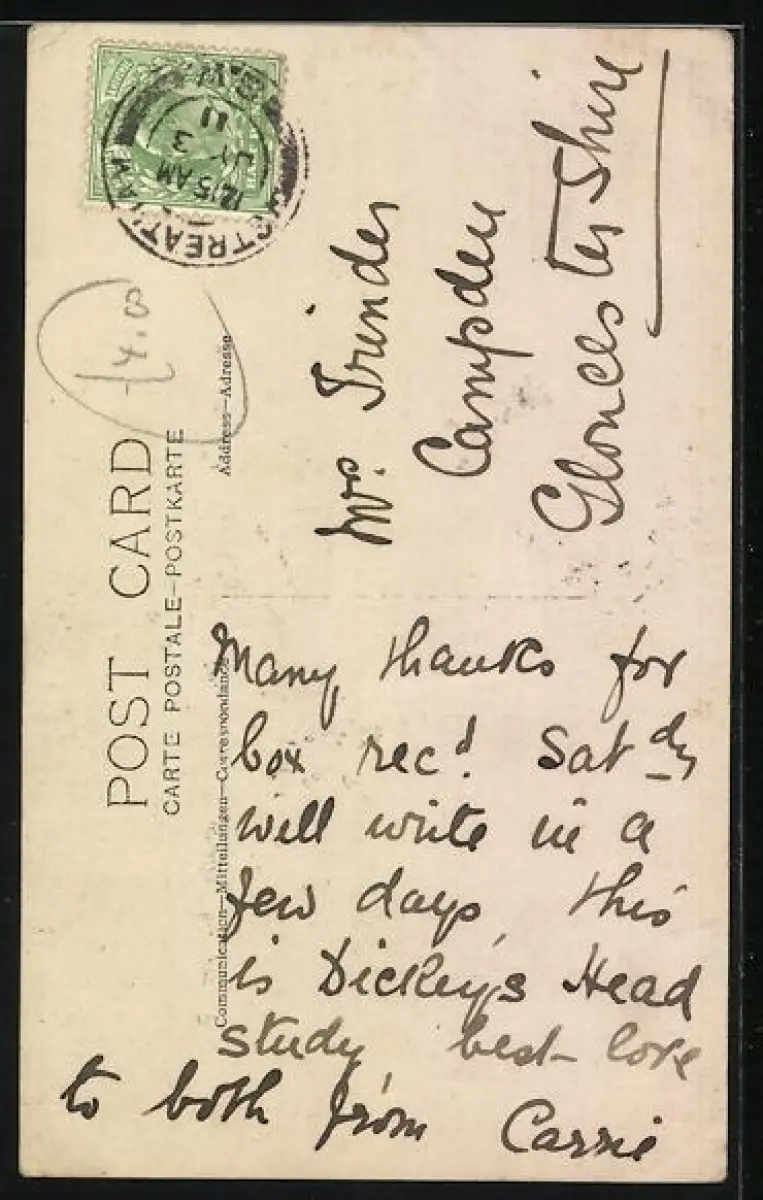 POST CARD
CARTE POSTALE—POSTKARTE
Address—Adresse
Communication—Mitteilungen—Correspondance
STREATHAM
S.W.
12.15 AM
JY 3
11
£4.00
Mrs. Trinder
Campden
Gloucestershire
Many thanks for
box recd. Satdy
will write in a
few days, this
is Dickey's Head
study, best love
to both from Carrie